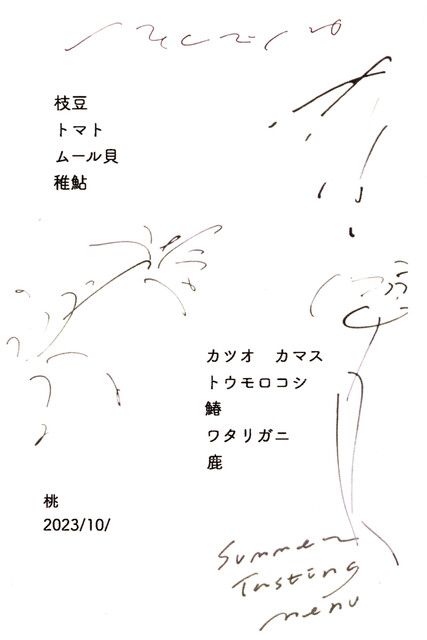 枝豆
トマト
ムール貝
稚鮎
カツオ　カマス
トウモロコシ
鰆
ワタリガニ
鹿
桃
2023/10/
Summer
Tasting
menu